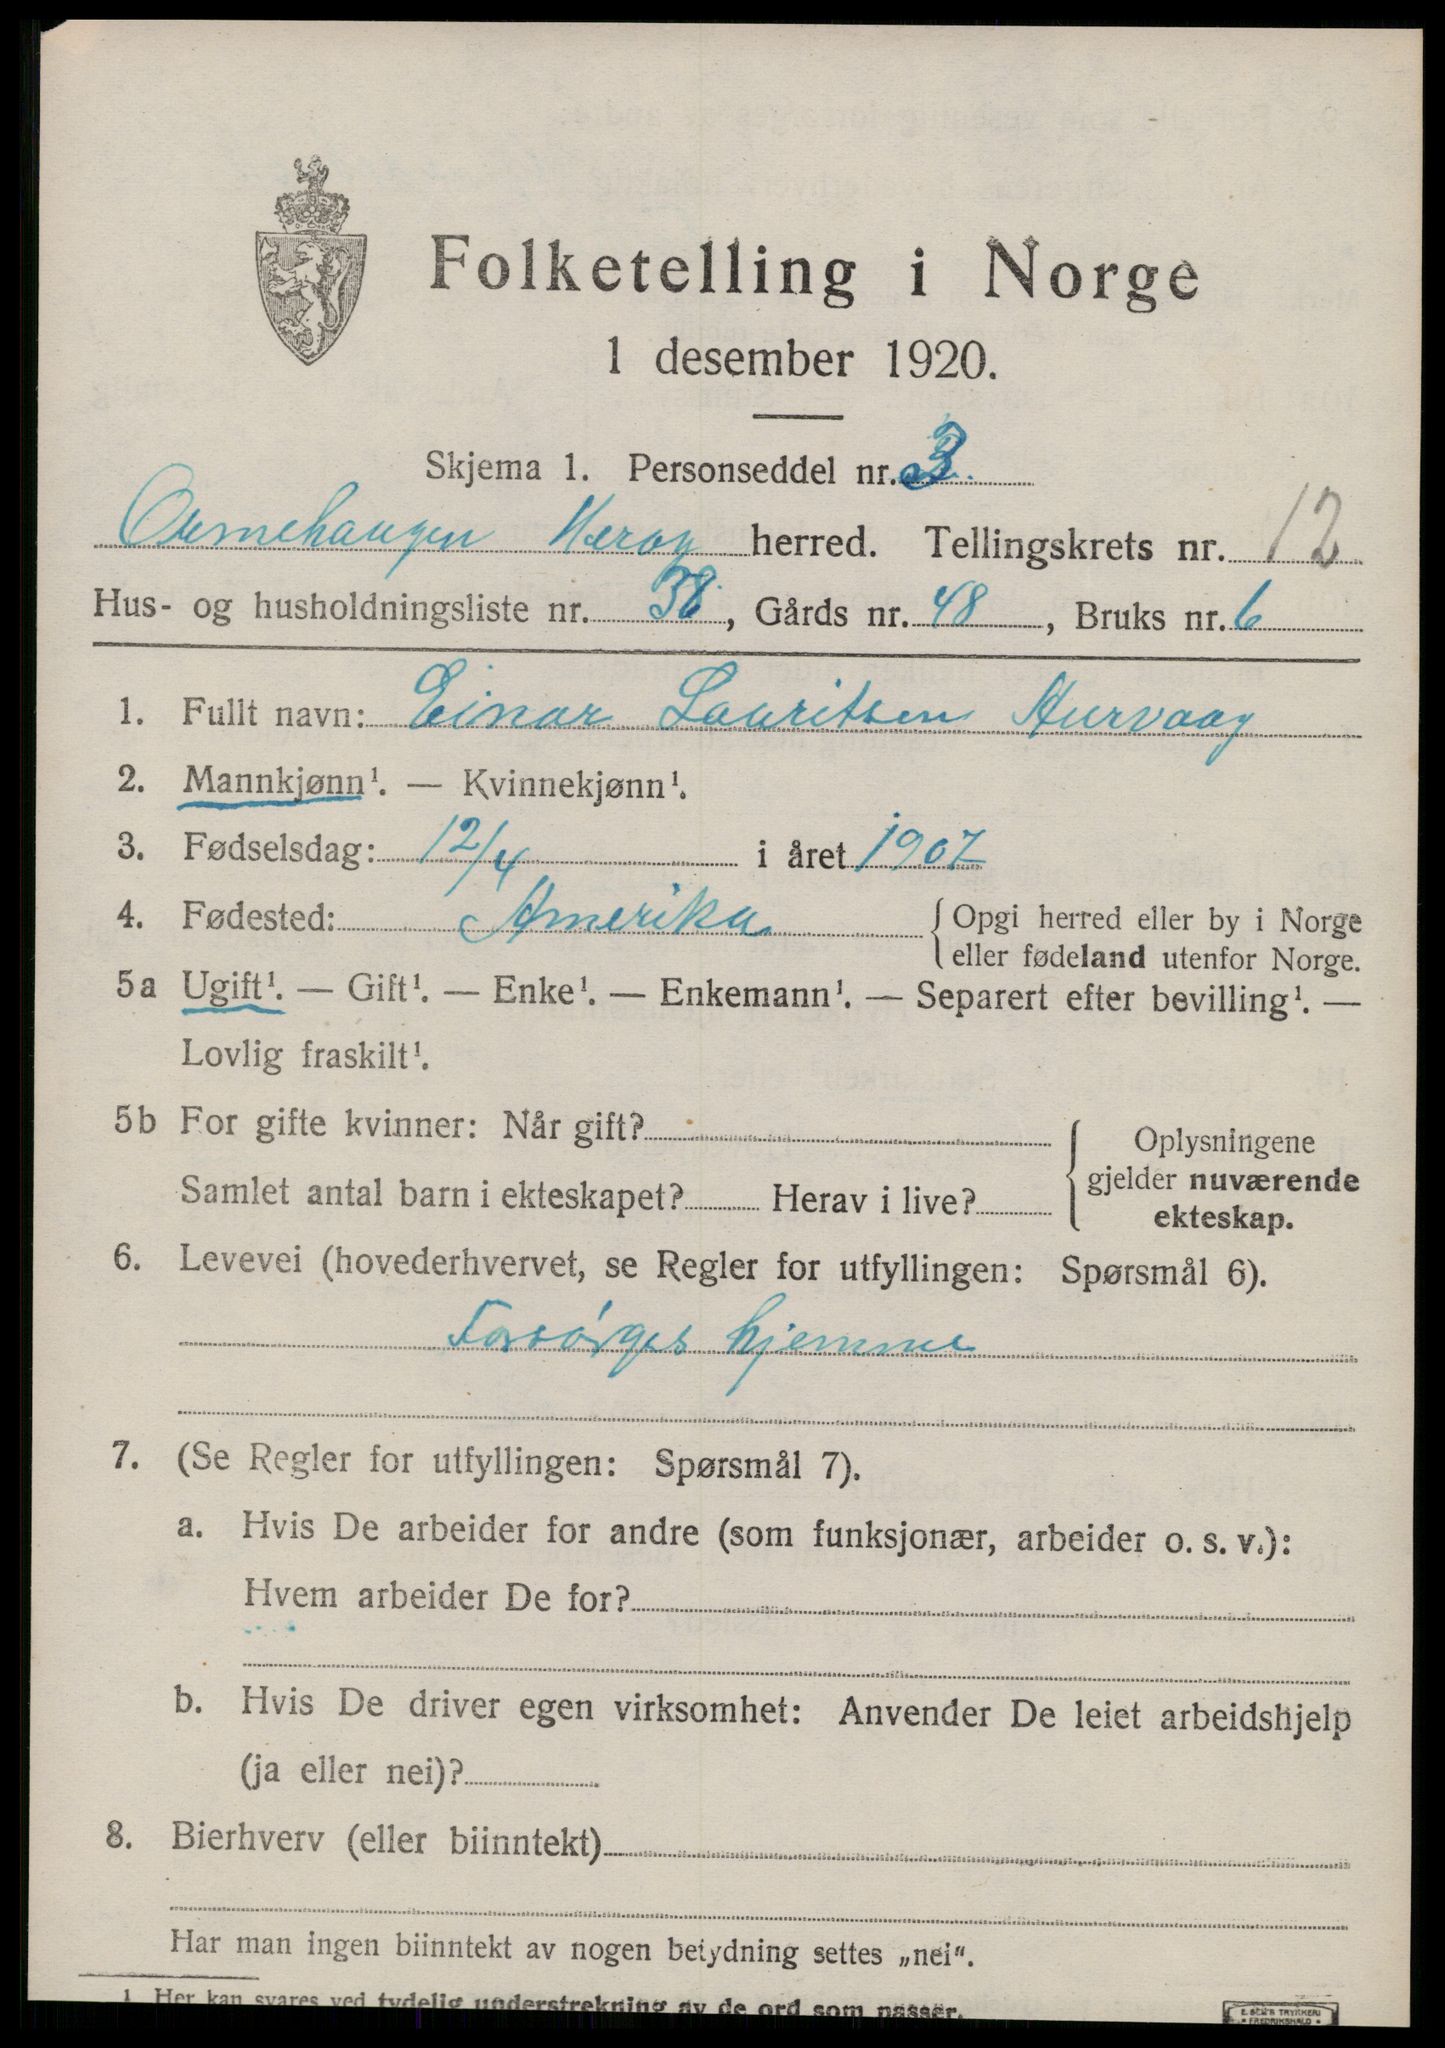 Folketelling i Norge
1 desember 1920.
Skjema 1. Personseddel nr. 3.
Herøy herred. Tellingskrets nr. 12
Hus- og husholdningsliste nr. 38, Gårds nr. 48, Bruks nr. 6
1. Fullt navn: Einar Lauritsen Hurvaag
2. Mannkjønn¹. — Kvinnekjønn¹.
3. Fødselsdag: 12/4 i året 1907
4. Fødested: Amerika {Opgi herred eller by i Norge
eller fødeland utenfor Norge.
5a Ugift¹. — Gift¹. — Enke¹. — Enkemann¹. — Separert efter bevilling¹. —
Lovlig fraskilt¹.
5b For gifte kvinner: Når gift?
Samlet antal barn i ekteskapet? Herav i live?
{Oplysningene
gjelder nuværende
ekteskap.
6. Levevei (hovederhvervet, se Regler for utfyllingen: Spørsmål 6).
Forsørges hjemme
7. (Se Regler for utfyllingen: Spørsmål 7).
a. Hvis De arbeider for andre (som funksjonær, arbeider o. s. v.):
Hvem arbeider De for?
b. Hvis De driver egen virksomhet: Anvender De leiet arbeidshjelp
(ja eller nei)?
8. Bierhverv (eller biinntekt)
Har man ingen biinntekt av nogen betydning settes „nei".
1 Her kan svares ved tydelig understrekning av de ord som passer.
E. SEM'S TRYKKERI
FREDRIKSHALD